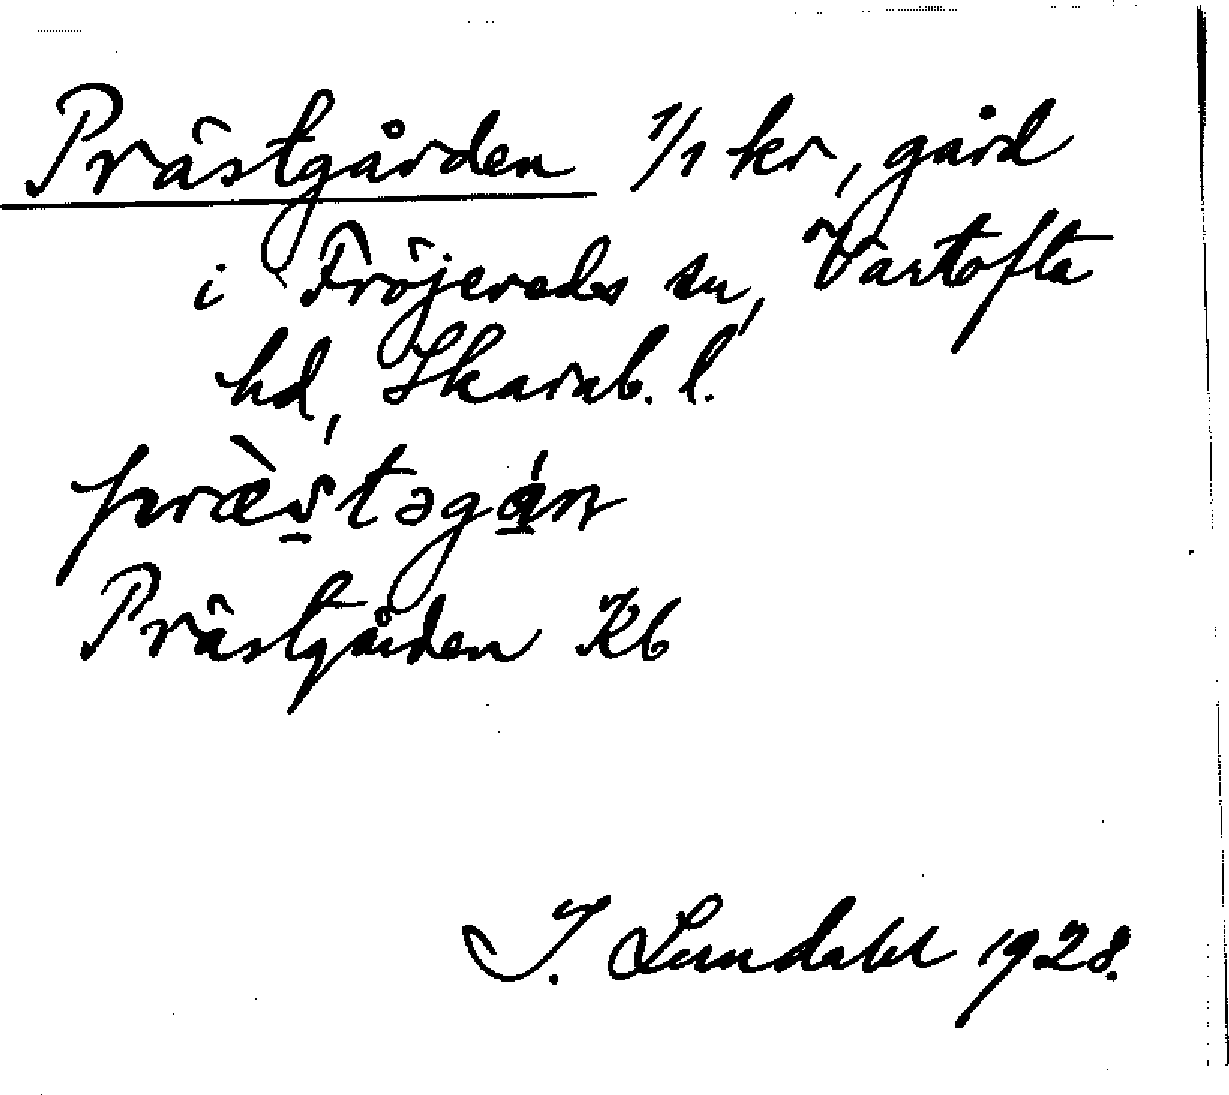 Prästgården 1/1 kr, gård
i Fröjereds sn, Vartofta
hd, Skarab. l.
præ̀s̠təgá̠ɳ
Prästgården Kb
I. Lundahl 1928.